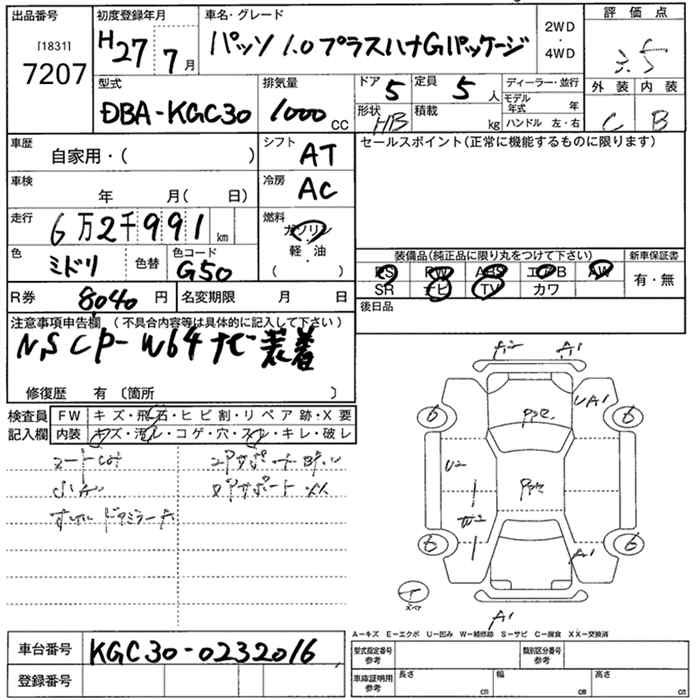 出品番号 初度登録年月 車名・グレード 2WD・4WD 評価点
[1831]
7207 H27 7月 パッソ 1.0プラスハナGパッケージ
外装 内装
C B
型式 排気量 ドア 5 定員 5人 ディーラー・並行
DBA-KGC30 1000cc 形状 HB 積載 kg モデル年式 年
ハンドル 左・右
車歴 自家用・( ) シフト AT セールスポイント(正常に機能するものに限ります)
車検 年 月( 日) 冷房 AC
走行 6万2千991km 燃料 ガソリン
軽・油
( )
色 ミドリ 色替 色コード G50
装備品(純正品に限り丸をつけて下さい) 新車保証書
PS PW ABS エアB AW 有・無
SR ナビ TV カワ
R券 8040円 名変期限 月 日 後日品
注意事項申告欄 (不具合内容等は具体的に記入して下さい)
NSCP-W64ナビ装着
修復歴 有 〔箇所 〕
検査員 FW キズ・飛石・ヒビ割・リペア跡・X要
記入欄 内装 キズ・汚れ・コゲ・穴・スレ・キレ・破レ
A2 A1
UA1
6 6
U2
6 6
A1
A1
A―キズ E―エクボ U―凹み W―補修跡 S―サビ C―腐食 XX―交換済
車台番号 KGC30-0232016
型式指定番号 参考 類別区分番号 参考
登録番号 車庫証明用 参考 長さ cm 幅 cm 高さ cm